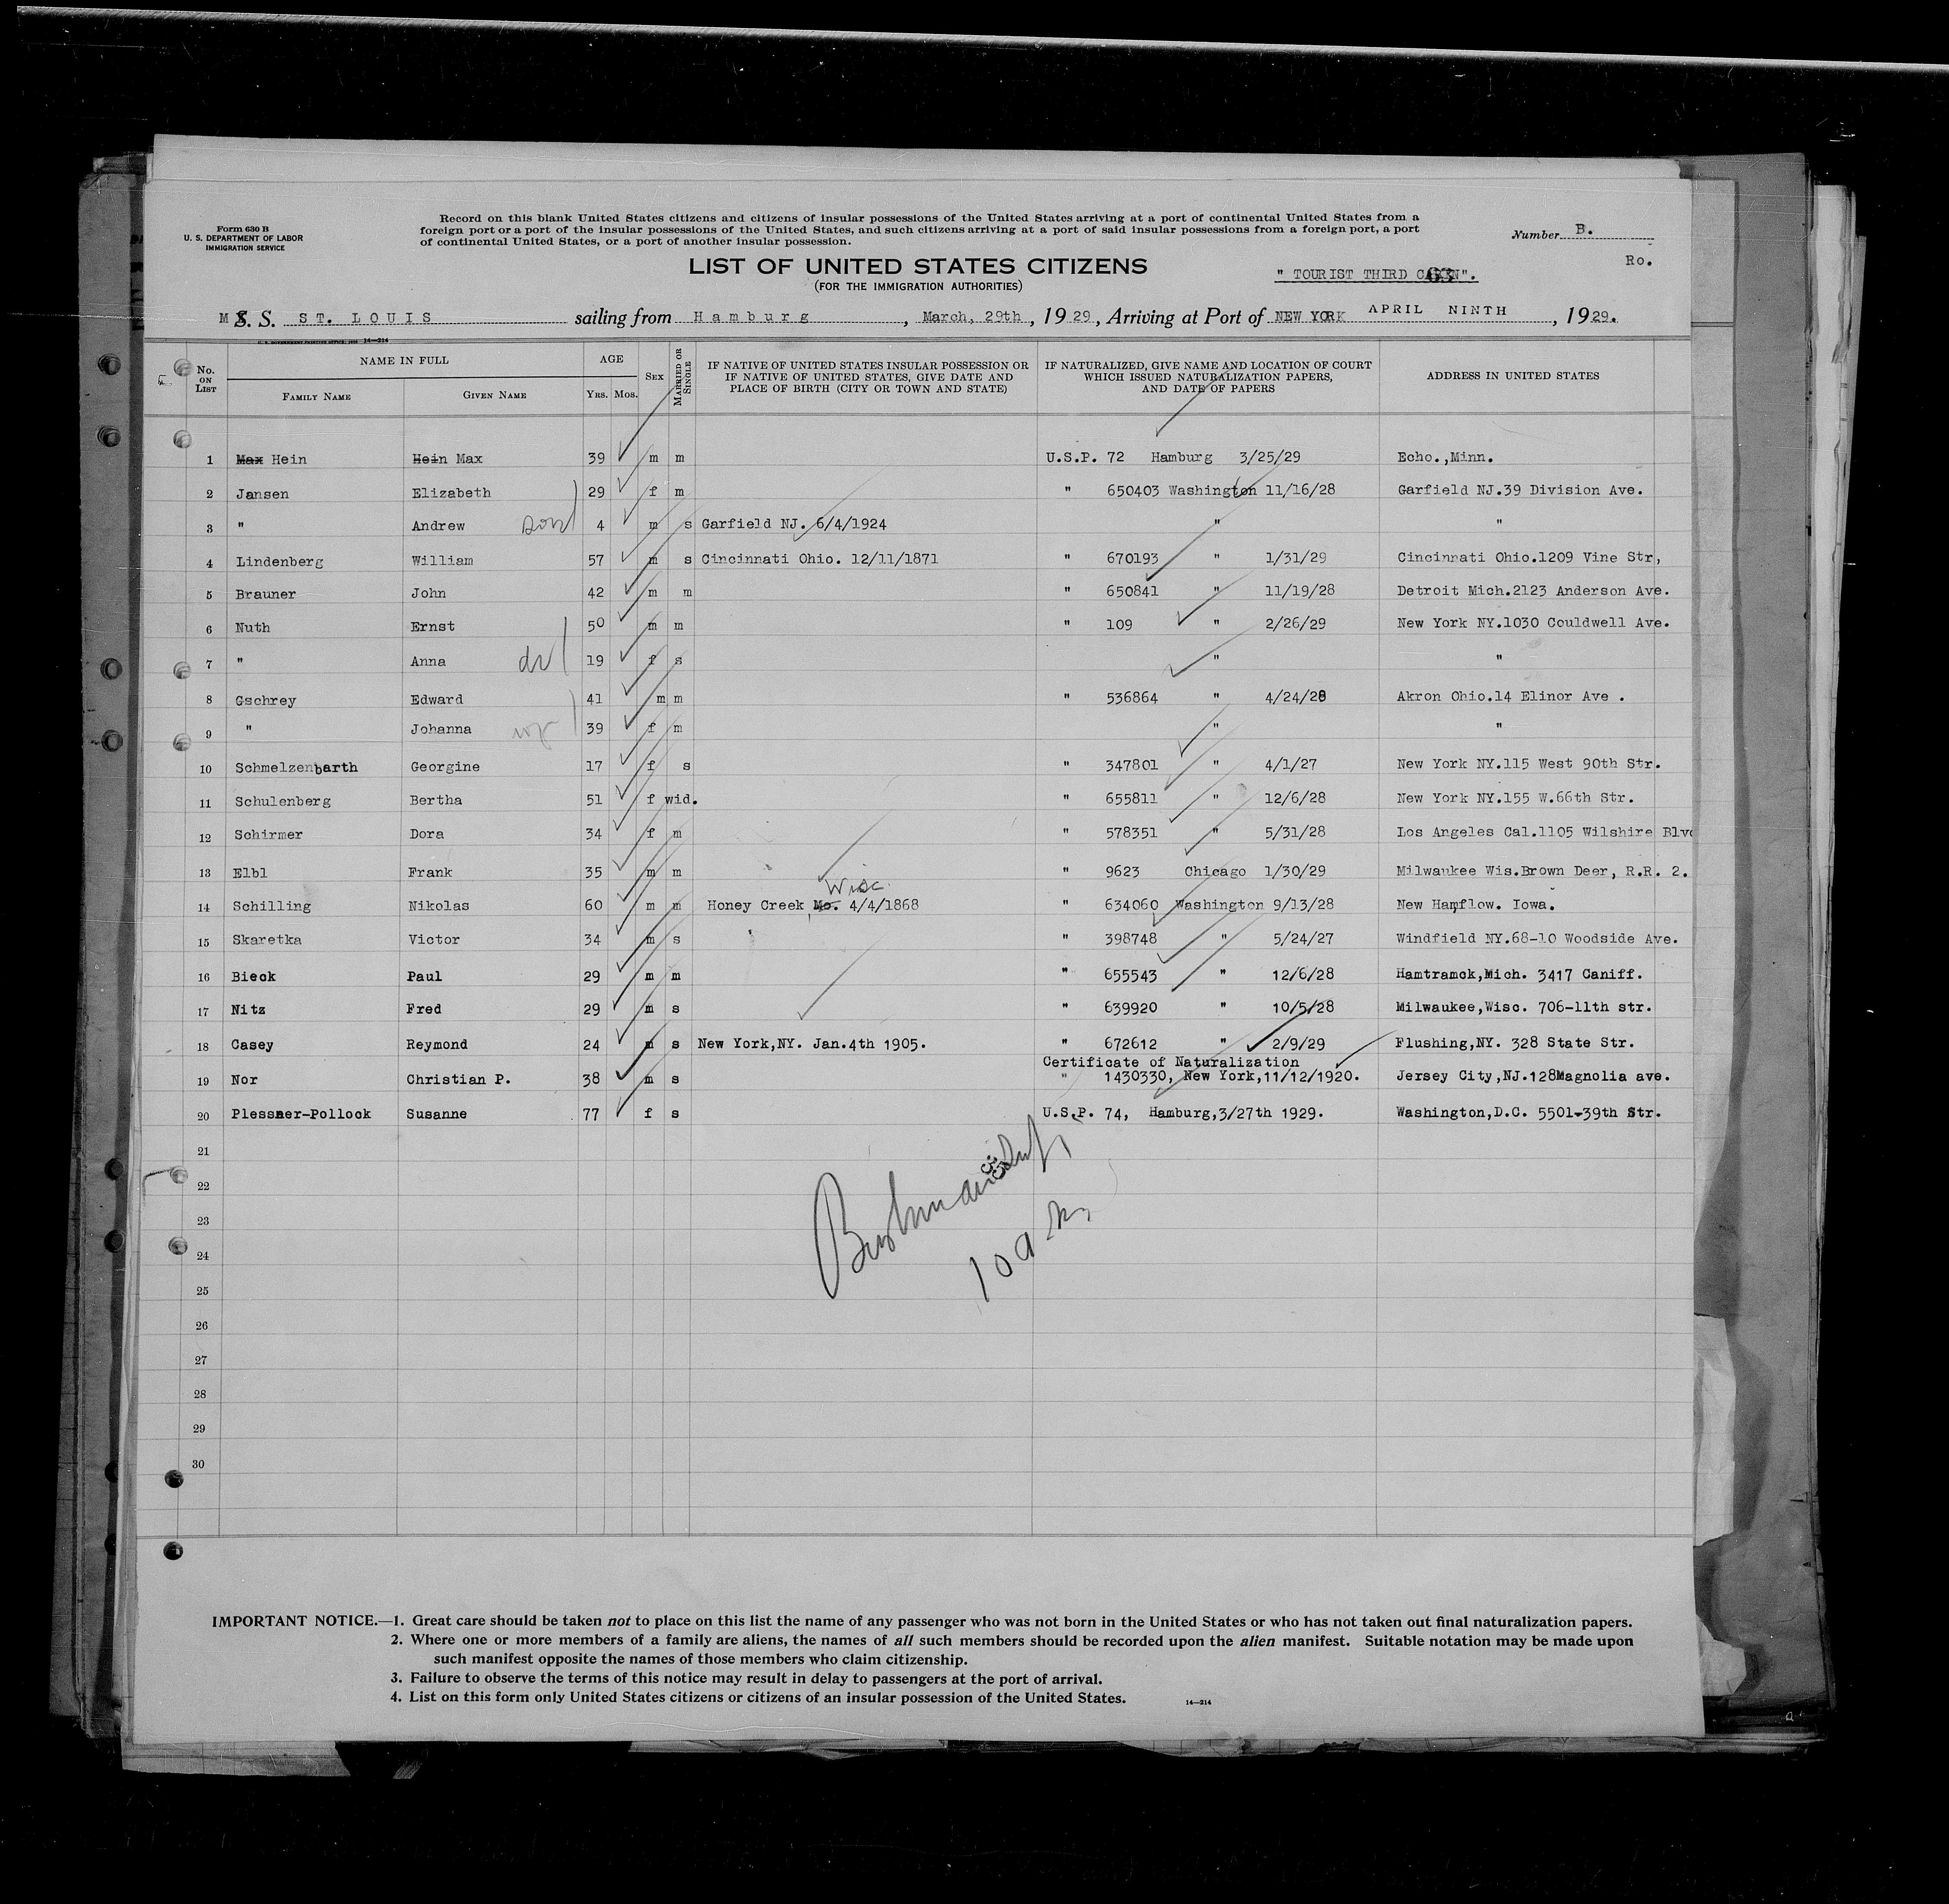 Form 630 B
U. S. DEPARTMENT OF LABOR
IMMIGRATION SERVICE
Record on this blank United States citizens and citizens of insular possessions of the United States arriving at a port of continental United States from a
foreign port or a port of the insular possessions of the United States, and such citizens arriving at a port of said insular possessions from a foreign port, a port
of continental United States, or a port of another insular possession.
Number B.
Ro.
LIST OF UNITED STATES CITIZENS
(FOR THE IMMIGRATION AUTHORITIES)
" TOURIST THIRD CABIN".
63
M S. S. ST. LOUIS sailing from Hamburg, March, 29th, 1929, Arriving at Port of NEW YORK APRIL NINTH, 1929.
No. ON LIST
NAME IN FULL
FAMILY NAME
GIVEN NAME
AGE
YRS. MOS.
SEX
MARRIED OR SINGLE
IF NATIVE OF UNITED STATES INSULAR POSSESSION OR
IF NATIVE OF UNITED STATES, GIVE DATE AND
PLACE OF BIRTH (CITY OR TOWN AND STATE)
IF NATURALIZED, GIVE NAME AND LOCATION OF COURT
WHICH ISSUED NATURALIZATION PAPERS,
AND DATE OF PAPERS
ADDRESS IN UNITED STATES
1 Max Hein Hein Max 39 m m U.S.P. 72 Hamburg 3/25/29 Echo.,Minn.
2 Jansen Elizabeth 29 f m " 650403 Washington 11/16/28 Garfield NJ.39 Division Ave.
3 " Andrew son 4 m s Garfield NJ. 6/4/1924 " "
4 Lindenberg William 57 m s Cincinnati Ohio. 12/11/1871 " 670193 " 1/31/29 Cincinnati Ohio.1209 Vine Str,
5 Brauner John 42 m m " 650841 " 11/19/28 Detroit Mich.2123 Anderson Ave.
6 Nuth Ernst 50 m m " 109 " 2/26/29 New York NY.1030 Couldwell Ave.
7 " Anna 19 f s " "
8 Gschrey Edward 41 m m " 536864 " 4/24/28 Akron Ohio.14 Elinor Ave .
9 " Johanna 39 f m " "
10 Schmelzenbarth Georgine 17 f s " 347801 " 4/1/27 New York NY.115 West 90th Str.
11 Schulenberg Bertha 51 f wid. " 655811 " 12/6/28 New York NY.155 W.66th Str.
12 Schirmer Dora 34 f m " 578351 " 5/31/28 Los Angeles Cal.1105 Wilshire Blvd
13 Elbl Frank 35 m m " 9623 Chicago 1/30/29 Milwaukee Wis.Brown Deer, R.R. 2.
Wisc.
14 Schilling Nikolas 60 m m Honey Creek, Mo. 4/4/1868 " 634060 Washington 9/13/28 New Hamflow. Iowa.
15 Skaretka Victor 34 m s " 398748 " 5/24/27 Windfield NY.68-10 Woodside Ave.
16 Bieck Paul 29 m m " 655543 " 12/6/28 Hamtramck,Mich. 3417 Caniff.
17 Nitz Fred 29 m s " 639920 " 10/5/28 Milwaukee,Wisc. 706-11th str.
18 Casey Reymond 24 m s New York,NY. Jan.4th 1905. " 672612 " 2/9/29 Flushing,NY. 328 State Str.
Certificate of Naturalization
19 Nor Christian P. 38 m s " 1430330, New York,11/12/1920. Jersey City,NJ.128Magnolia ave.
20 Plessner-Pollock Susanne 77 f s U.S.P. 74, Hamburg,3/27th 1929. Washington,D.C. 5501-39th Str.
21
22
23
24
25
26
27
28
29
30
IMPORTANT NOTICE.—1. Great care should be taken not to place on this list the name of any passenger who was not born in the United States or who has not taken out final naturalization papers.
2. Where one or more members of a family are aliens, the names of all such members should be recorded upon the alien manifest. Suitable notation may be made upon
such manifest opposite the names of those members who claim citizenship.
3. Failure to observe the terms of this notice may result in delay to passengers at the port of arrival.
4. List on this form only United States citizens or citizens of an insular possession of the United States.
14—214